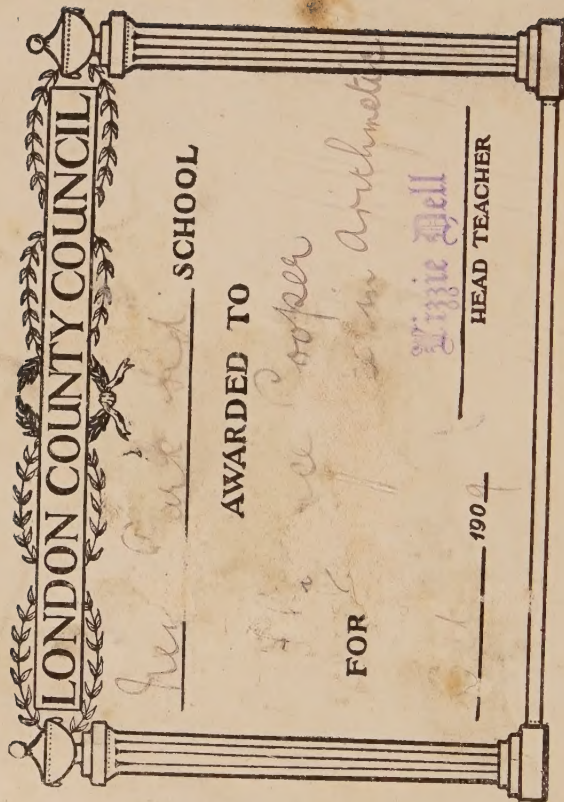 LONDON COUNTY COUNCIL
New Park Rd. SCHOOL
AWARDED TO
Cooper
FOR in Arithmetic
1909
Lizzie Dell
HEAD TEACHER